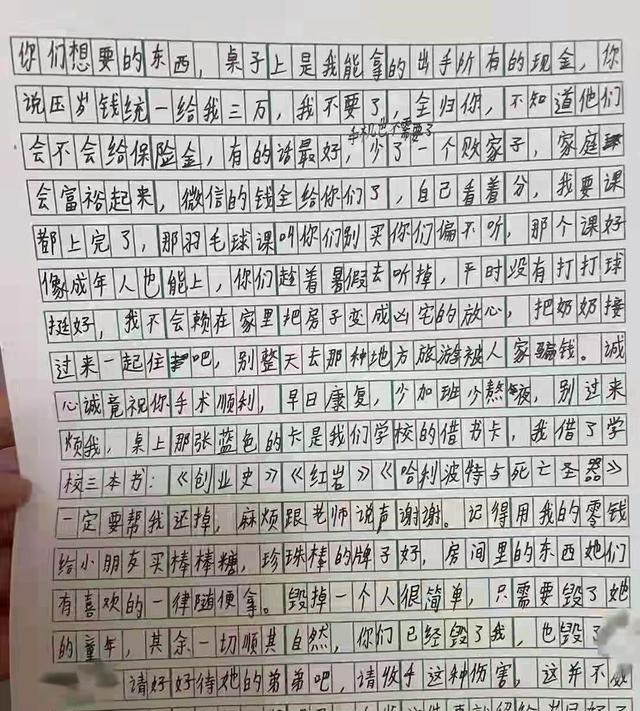 你们想要的东西，桌子上是我能拿的出手所有的现金，你
说压岁钱统一给我三万，我不要了，全归你，不知道他们
手机也不需要了
会不会给保险金，有的话最好，少了一个败家子，家庭
会富裕起来，微信的钱全给你们了，自己看着分，我要课
都上完了，那羽毛球课叫你们别买你们偏不听，那个课好
像成年人也能上，你们趁着暑假去听掉，平时没有打打球
挺好，我不会赖在家里把房子变成凶宅的放心，把奶奶接
过来一起住吧，别整天去那种地方旅游被人家骗钱。诚
心诚意祝你手术顺利，早日康复，少加班少熬夜，别过来
烦我，桌上那张蓝色的卡是我们学校的借书卡，我借了学
校三本书：《创业史》《红岩》《哈利波特与死亡圣器》
一定要帮我还掉，麻烦跟老师说声谢谢。记得用我的零钱
给小朋友买棒棒糖，珍珠棒的牌子好，房间里的东西她们
有喜欢的一律随便拿。毁掉一个人很简单，只需要毁了她
的童年，其余一切顺其自然，你们已经毁了我，也毁了
请好好待她的弟弟吧，请收手这种伤害，这并不